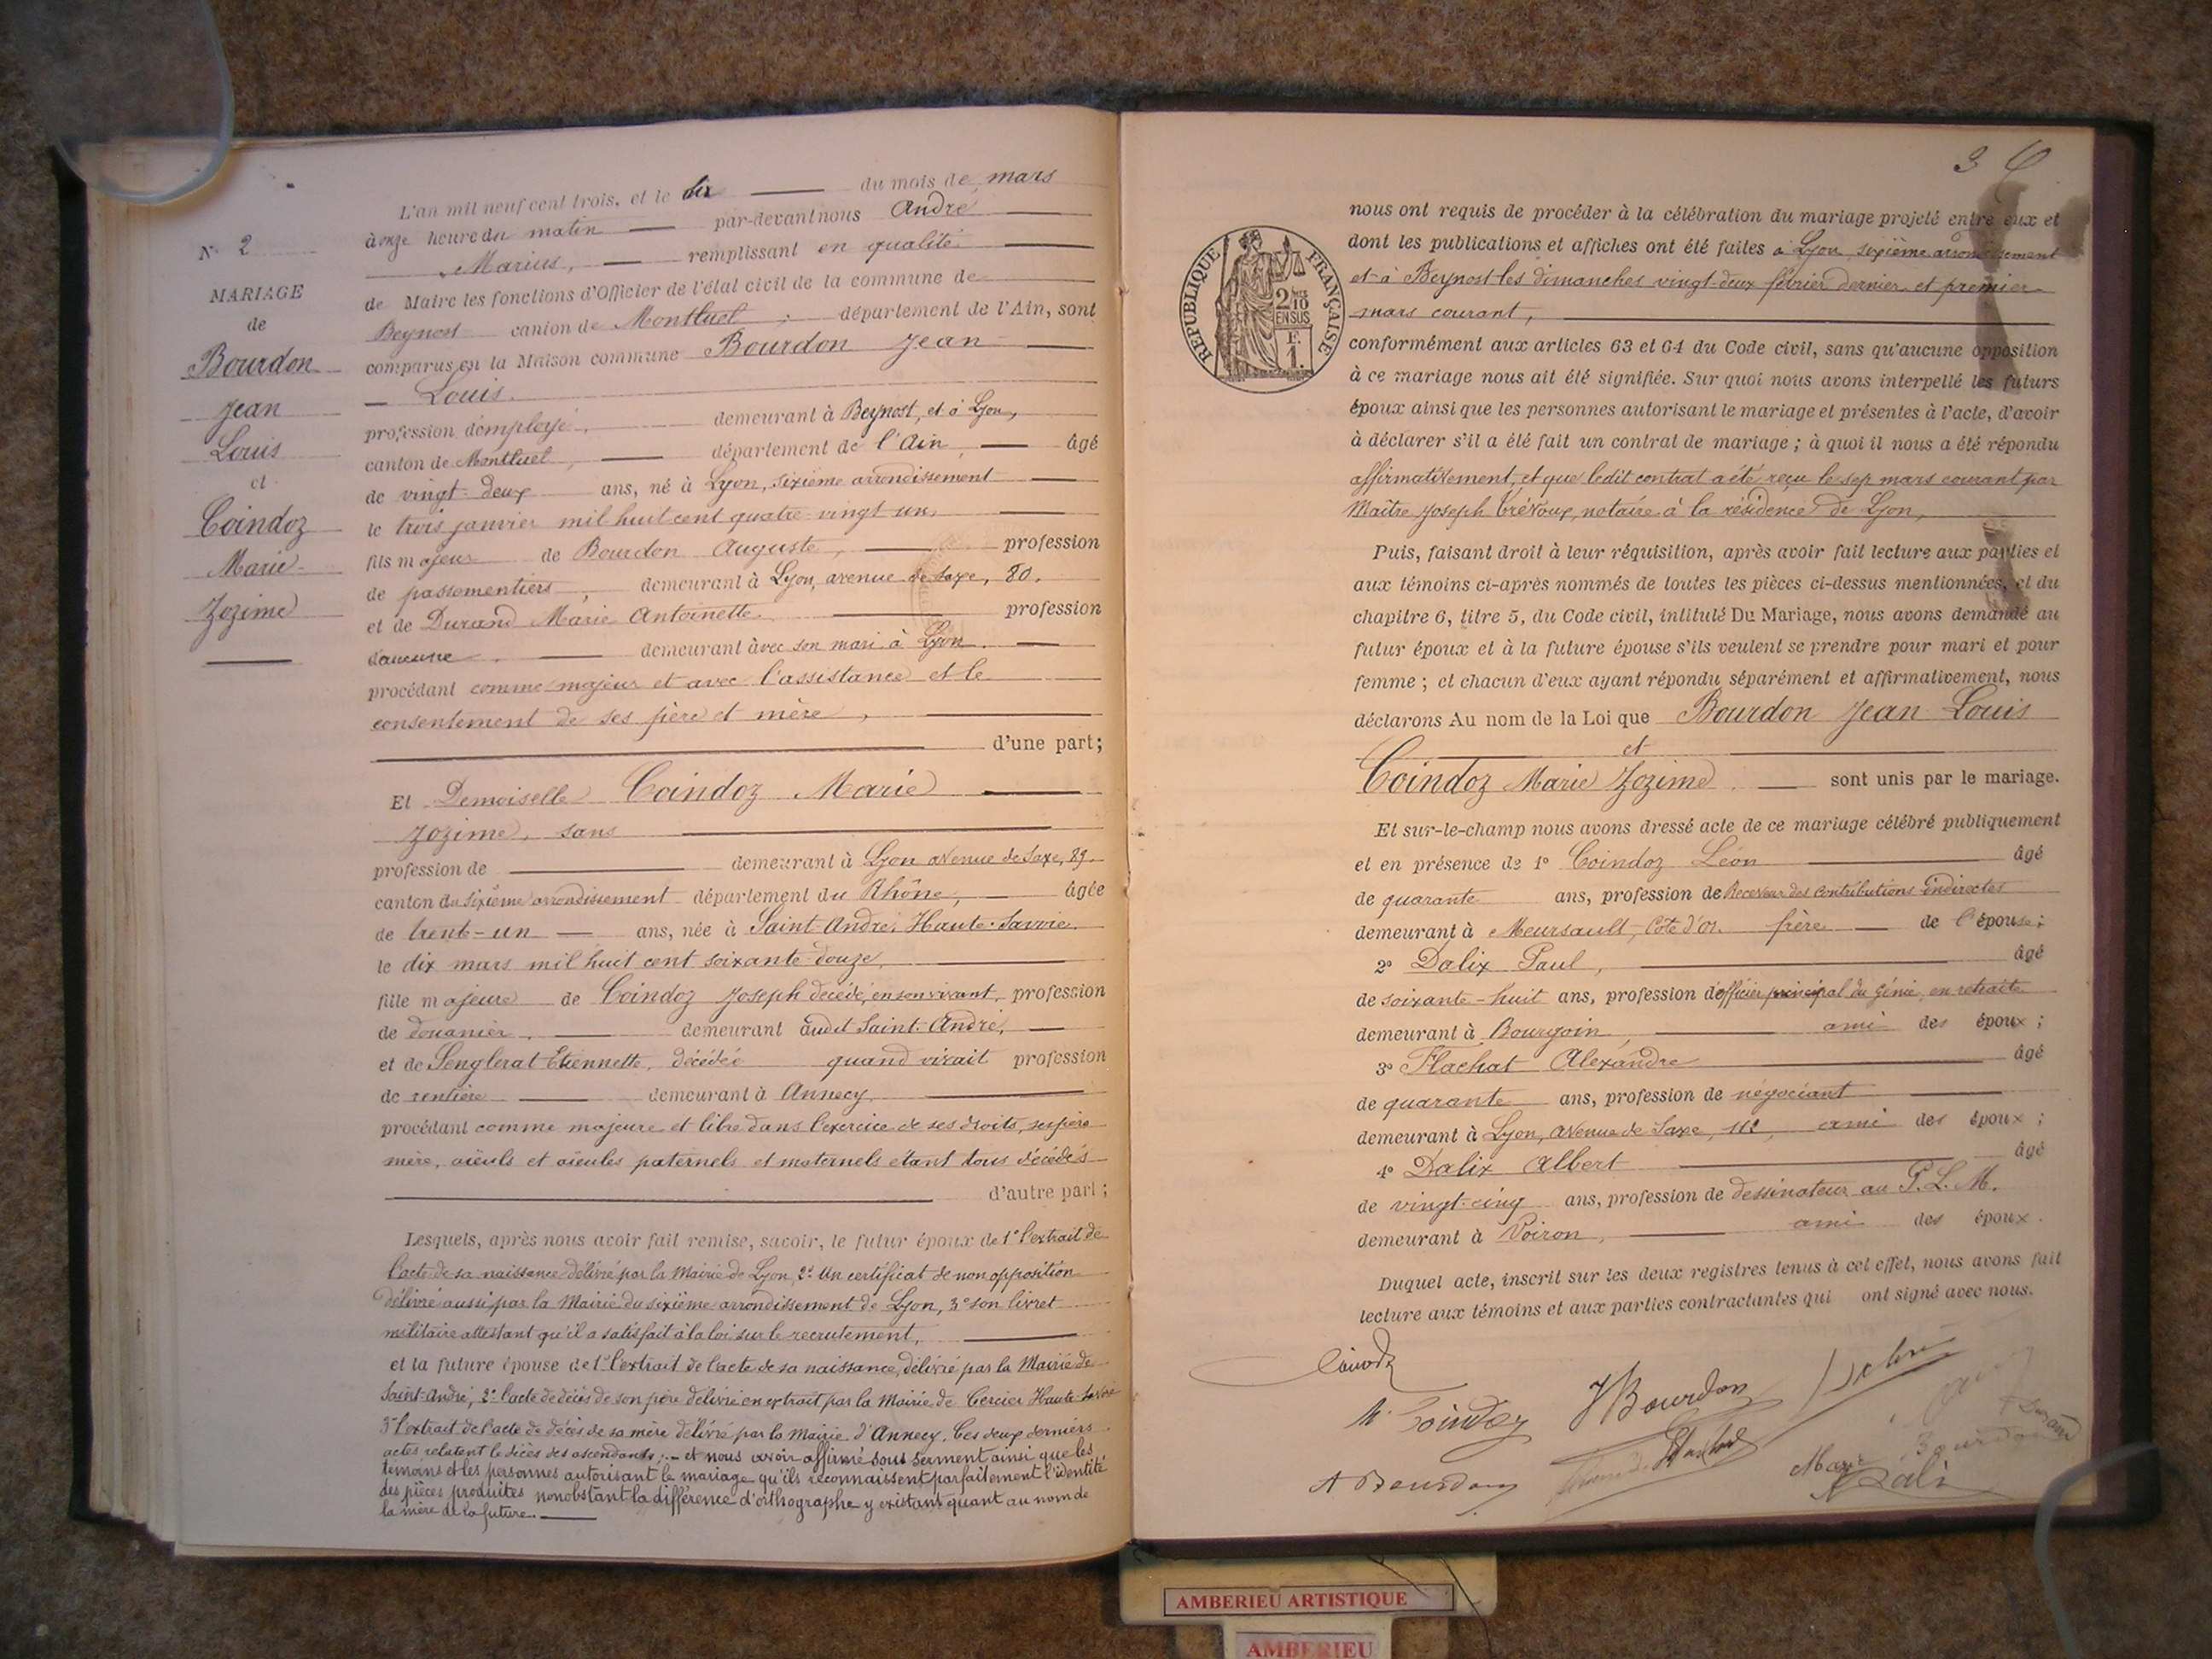 L'an mil neuf cent trois, et le dix du mois de mars
à onze heure du matin par-devant nous André
Marius, remplissant en qualité
de Maire les fonctions d'Officier de l'état civil de la commune de
Beynost canton de Montluel ; département de l'Ain, sont
comparus en la Maison commune Bourdon Jean
Louis.
profession d'employé, demeurant à Beynost, et à Lyon,
canton de Montluel, département de l'Ain, âgé
de vingt-deux ans, né à Lyon, sixième arrondissement
le trois janvier mil huit cent quatre-vingt un,
fils majeur de Bourdon Auguste, profession
de passementiers, demeurant à Lyon, avenue de Saxe, 80.
et de Durand Marie Antoinette profession
d'aucune. demeurant avec son mari à Lyon.
procédant comme majeur et avec l'assistance et le
consentement de ses père et mère,
d'une part;
Et Demoiselle Coindoz Marie
Zozime, sans
profession de demeurant à Lyon avenue de Saxe, 89.
canton du sixième arrondissement département du Rhône, âgée
de trente-un ans, née à Saint-André, Haute-Savoie,
le dix mars mil huit cent soixante-douze,
fille majeure de Coindoz Joseph décédé, en son vivant, profession
de douanier, demeurant audit Saint-André,
et de Senglerat Etiennette, décédée quand vivait profession
de rentière demeurant à Annecy,
procédant comme majeure et libre dans l'exercice de ses droits, ses père
mère, aïeuls et aïeules paternels et maternels étant tous décédés
d'autre part ;
Lesquels, après nous avoir fait remise, savoir, le futur époux de 1° l'extrait de
l'acte de sa naissance délivré par la Mairie de Lyon, 2° Un certificat de non opposition
délivré aussi par la Mairie du sixième arrondissement de Lyon, 3° son livret
militaire attestant qu'il a satisfait à la loi sur le recrutement,
et la future épouse de 1° l'extrait de l'acte de sa naissance, délivré par la Mairie de
Saint-André, 2° l'acte de décès de son père délivré en extrait par la Mairie de Cercier Haute Savoie
3° l'extrait de l'acte de décès de sa mère délivré par la Mairie d'Annecy. Ces deux derniers
actes relatent le décès des ascendants ; et nous avoir affirmé sous serment ainsi que les
témoins et les personnes autorisant le mariage qu'ils reconnaissent parfaitement l'identité
des pièces produites nonobstant la différence d'orthographe y existant quant au nom de
la mère de la future.
N° 2
MARIAGE
de
Bourdon
Jean
Louis
et
Coindoz
Marie
Zozime
3
RÉPUBLIQUE FRANÇAISE
2/10 EN SUS
F. 1.
nous ont requis de procéder à la célébration du mariage projeté entre eux et
dont les publications et affiches ont été faites à Lyon, sixième arrondissement
et à Beynost les dimanches vingt-deux février dernier et premier
mars courant,
conformément aux articles 63 et 64 du Code civil, sans qu'aucune opposition
à ce mariage nous ait été signifiée. Sur quoi nous avons interpellé les futurs
époux ainsi que les personnes autorisant le mariage et présentes à l'acte, d'avoir
à déclarer s'il a été fait un contrat de mariage ; à quoi il nous a été répondu
affirmativement, et que ledit contrat a été reçu le sep mars courant par
Maître Joseph Trévoux, notaire à la résidence de Lyon,
Puis, faisant droit à leur réquisition, après avoir fait lecture aux parties et
aux témoins ci-après nommés de toutes les pièces ci-dessus mentionnées, et du
chapitre 6, titre 5, du Code civil, intitulé Du Mariage, nous avons demandé au
futur époux et à la future épouse s'ils veulent se prendre pour mari et pour
femme ; et chacun d'eux ayant répondu séparément et affirmativement, nous
déclarons Au nom de la Loi que Bourdon Jean Louis
et
Coindoz Marie Zozime sont unis par le mariage.
Et sur-le-champ nous avons dressé acte de ce mariage célébré publiquement
et en présence de 1° Coindoz Léon âgé
de quarante ans, profession de Receveur des Contributions indirectes
demeurant à Meursault, Côte d'Or. frère de l'épouse ;
2° Dalix Paul, âgé
de soixante-huit ans, profession d'officier principal du Génie, en retraite
demeurant à Bourgoin, ami des époux ;
3° Flachat Alexandre âgé
de quarante ans, profession de négociant
demeurant à Lyon, avenue de Saxe, 112, ami des époux ;
4° Dalix Albert âgé
de vingt-cinq ans, profession de dessinateur au P. L. M.
demeurant à Voiron, ami des époux.
Duquel acte, inscrit sur les deux registres tenus à cet effet, nous avons fait
lecture aux témoins et aux parties contractantes qui ont signé avec nous.
Coindoz
M. Coindoz
J Bourdon
A Bourdon
Flachat
Marie Bourdon
Durand
A Dalix
AMBERIEU ARTISTIQUE
AMBERIEU